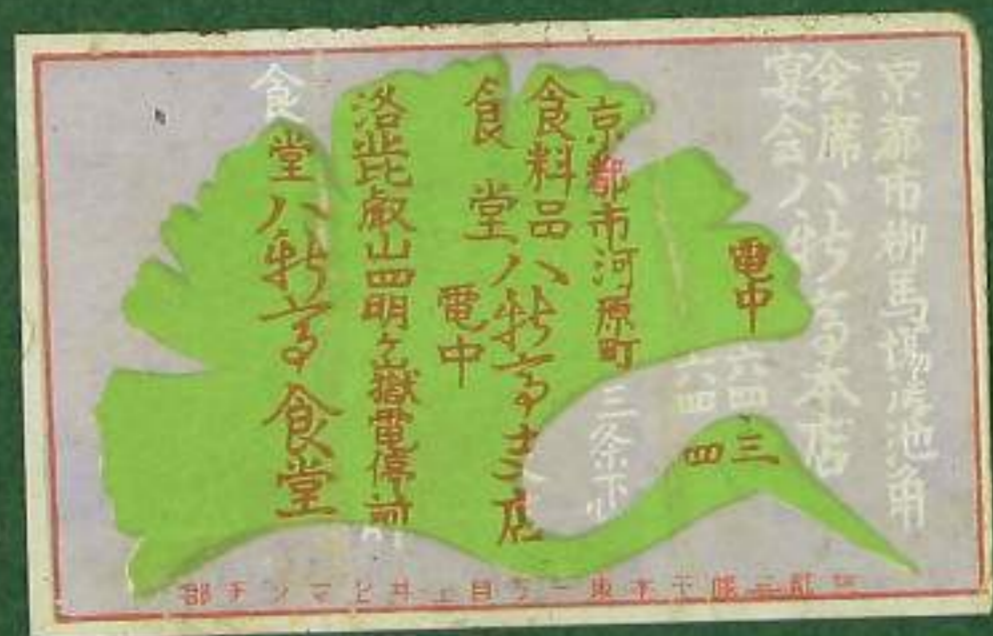 京都市柳馬場御池角
会席
宴会
八新亭本店
電中
六四三
六四四
京都市河原町三条下ル
食料品
食堂
八新亭支店
電中
洛北比叡山四明ヶ嶽電停前
食堂八新亭食堂